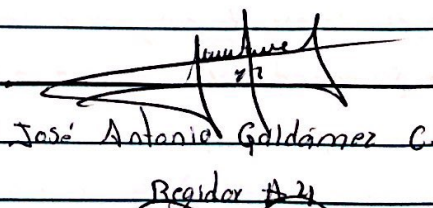 José Antonio Galdámez C.
Regidor #4